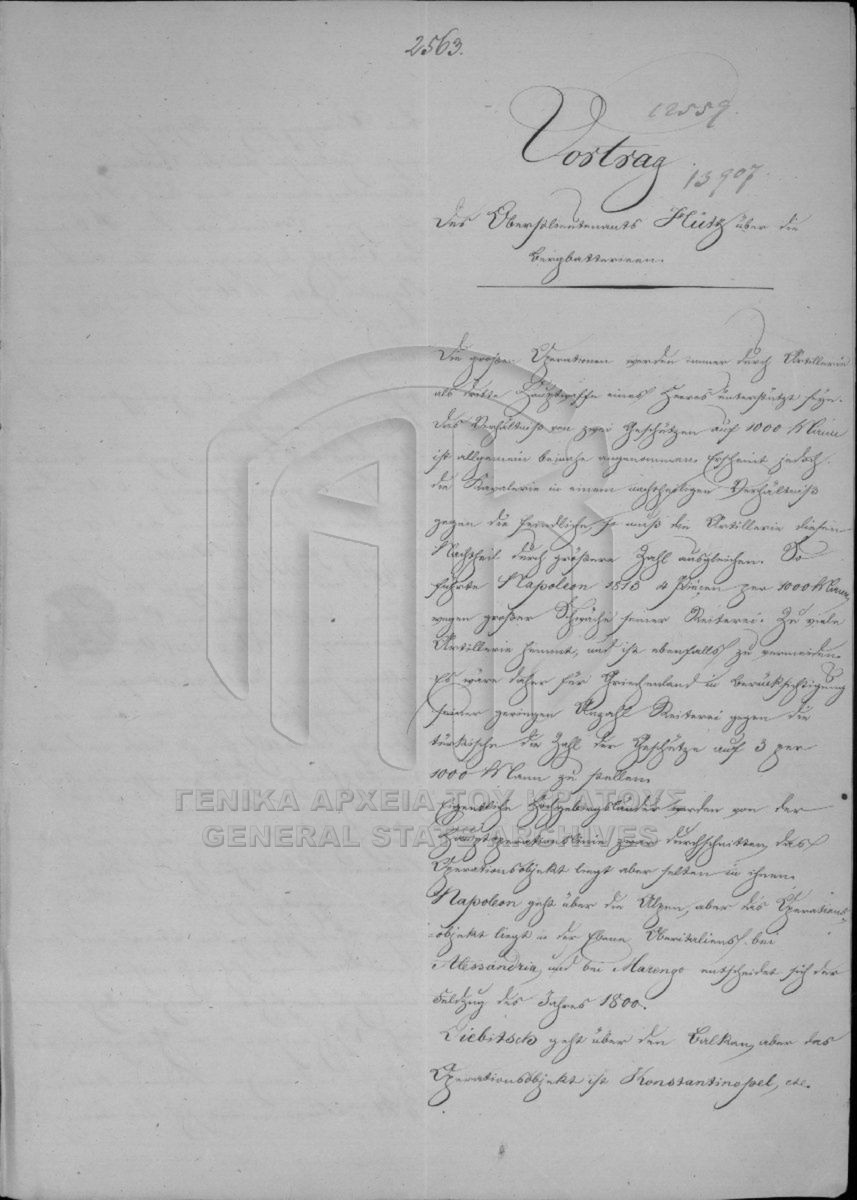 2563.
12559.
Vortrag
13907
des Oberstlieutenants Hütz über die
Bergbatterieen.
Die großen Operationen werden immer durch Artillerie
als dritte Hauptwaffe eines Heeres unterstützt seyn.
Das Verhältniß von zwei Geschützen auf 1000 Mann
ist allgemein beinahe angenommen. Erscheint jedoch
die Kavalerie in einem nachtheiligen Verhältniß
gegen die feindliche, so muß die Artillerie diesen
Nachtheil durch größere Zahl ausgleichen. So
führte Napoleon 1813 4 Piecen per 1000 Mann,
wegen großer Schwäche seiner Reiterei. Zu viele
Artillerie hemmt, und ist ebenfalls zu vermeiden.
Es wäre daher für Griechenland in Berücksichtigung
seiner geringen Anzahl Reiterei gegen die
türkische die Zahl der Geschütze auf 3 per
1000 Mann zu stellen.
Eigentliche Hochgebirgsländer werden von der
Hauptoperationslinie zwar durchschnitten, das
Operationsobjekt liegt aber selten in ihnen.
Napoleon geht über die Alpen, aber das Operations-
objekt liegt in der Ebene Oberitaliens bei
Alessandria, und bei Marengo entscheidet sich der
Feldzug des Jahres 1800.
Diebitsch geht über den Balkan, aber das
Operationsobjekt ist Konstantinopel, etc.
ΓΕΝΙΚΑ ΑΡΧΕΙΑ ΤΟΥ ΚΡΑΤΟΥΣ
GENERAL STATE ARCHIVES